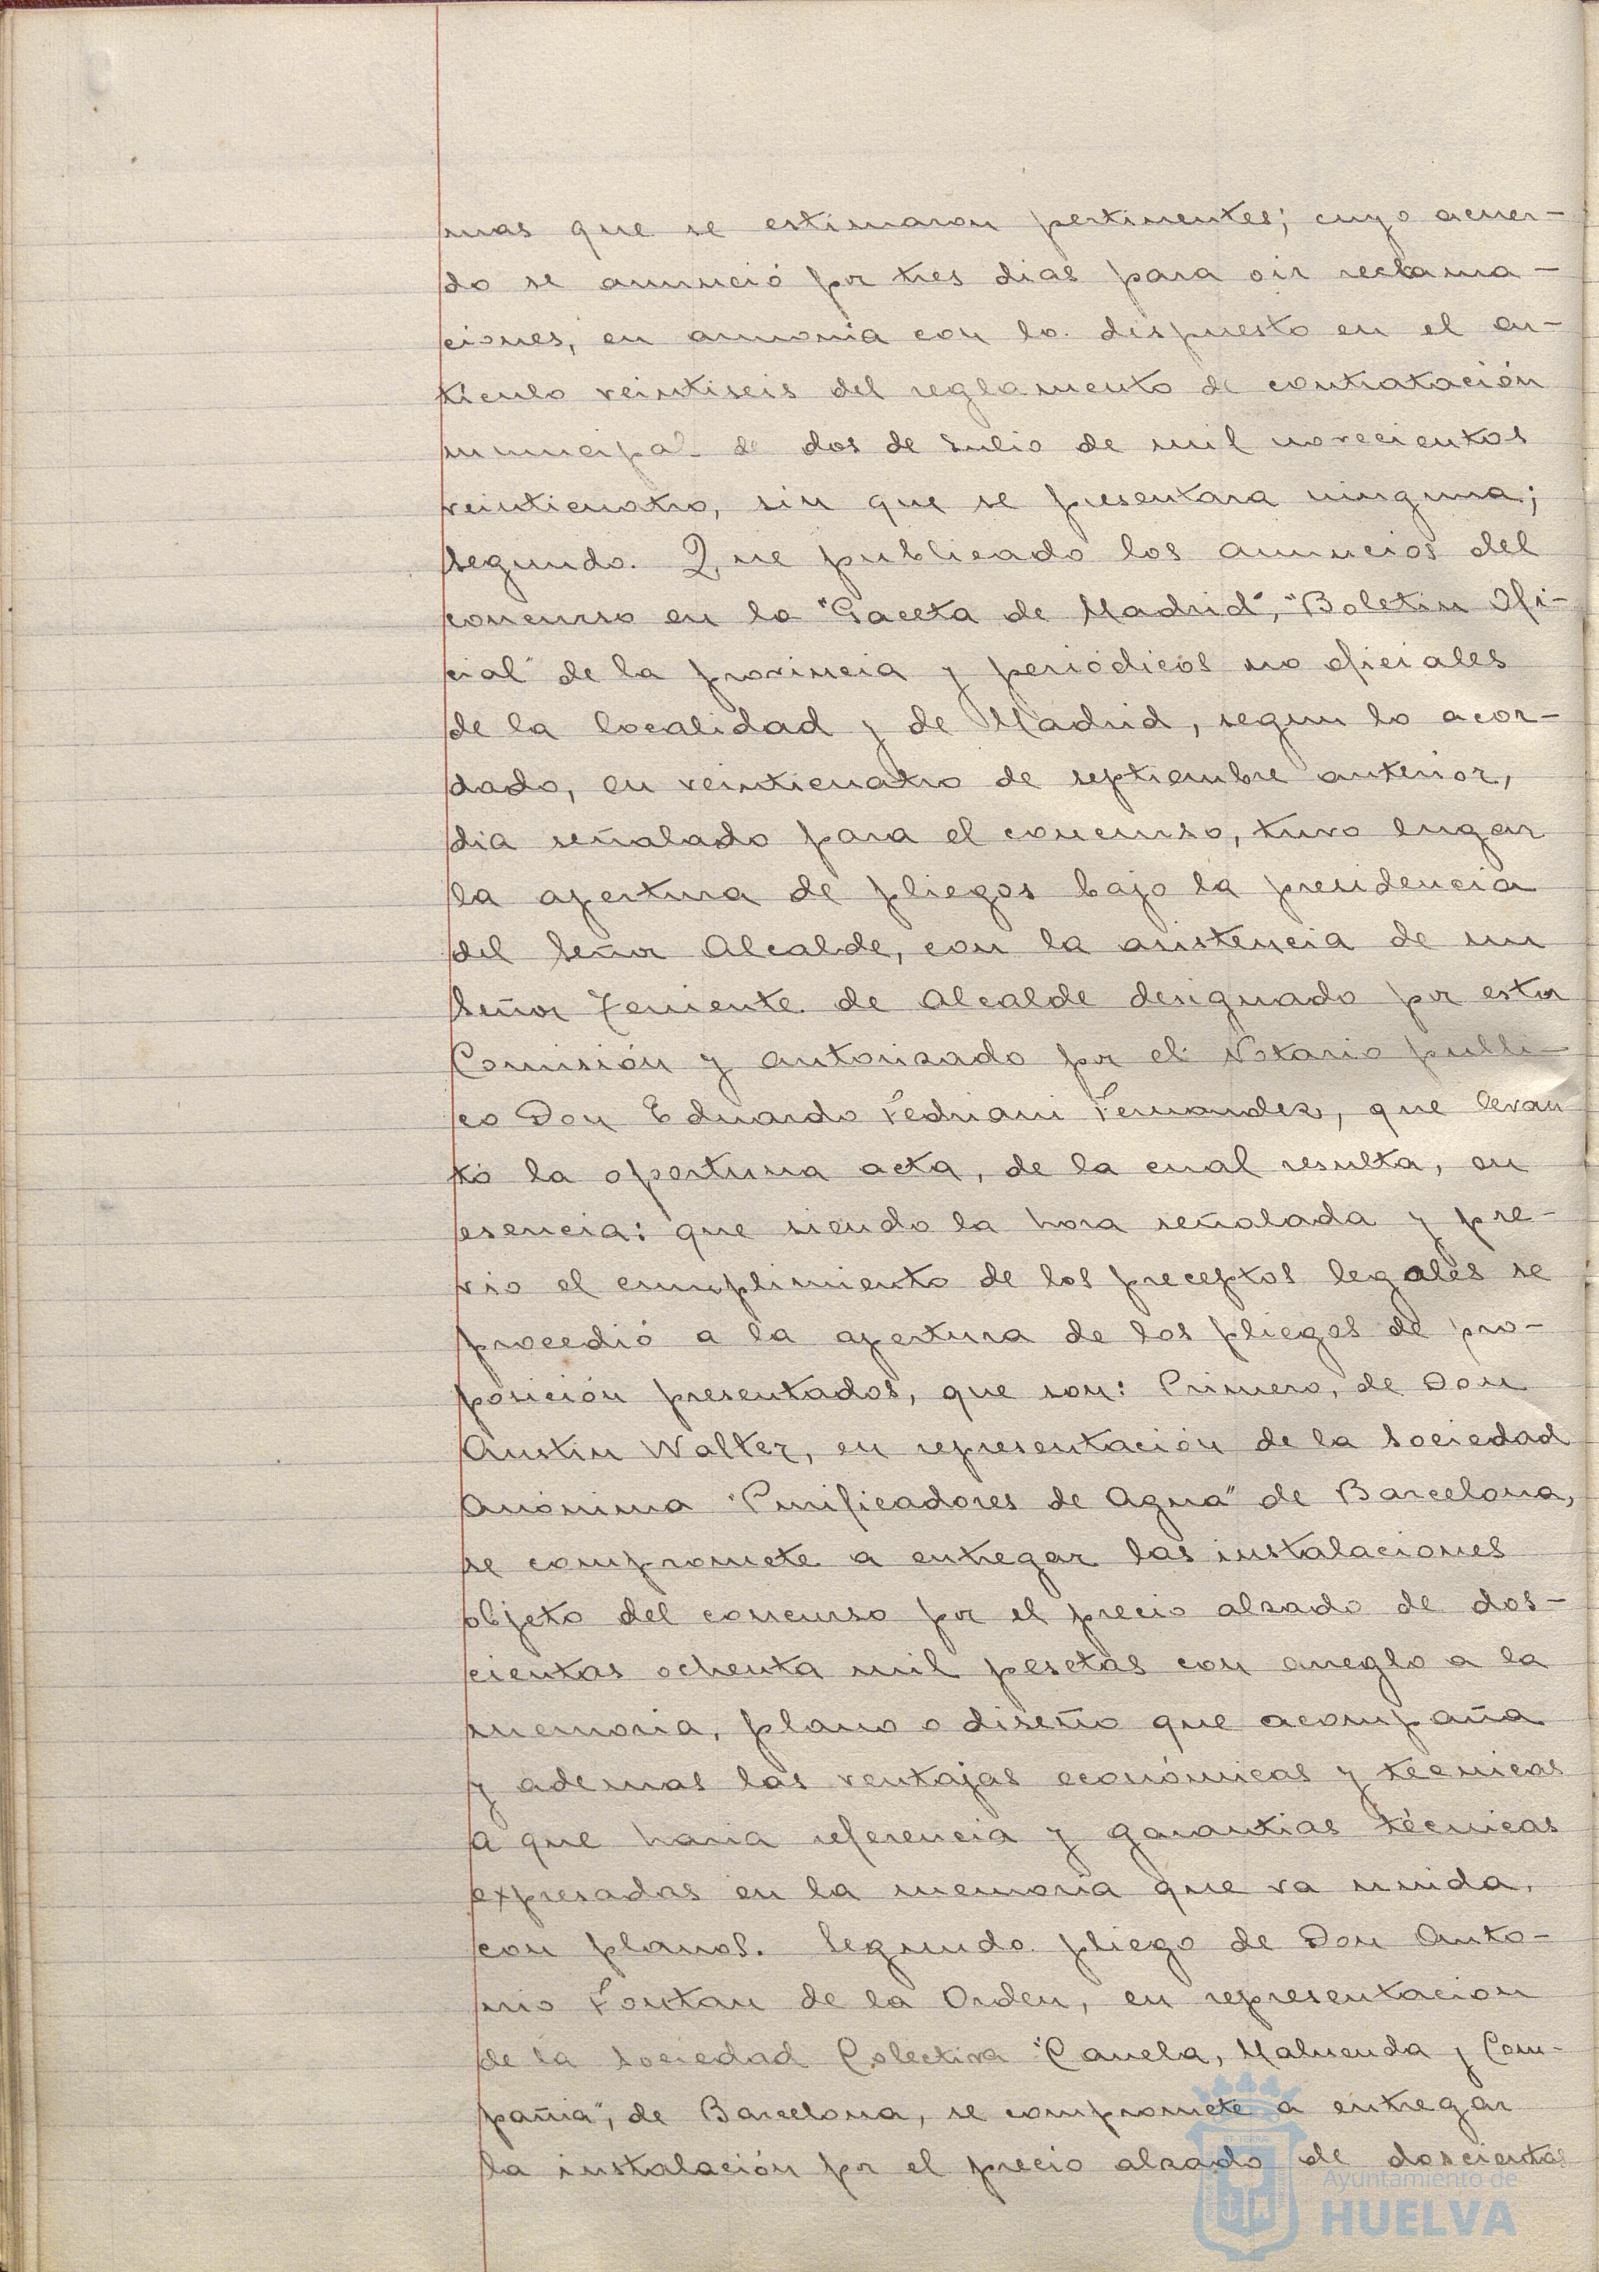 mas que se estimaron pertinentes; cuyo acuer-
do se anunció por tres dias para oir reclama-
ciones, en armonia con lo dispuesto en el ar-
tículo veintiseis del reglamento de contratación
municipal de dos de Julio de mil novecientos
veinticuatro, sin que se presentara ninguna;
segundo. Que publicado los anuncios del
concurso en la "Gaceta de Madrid", "Boletin Ofi-
cial" de la provincia y periódicos no oficiales
de la localidad y de Madrid, segun lo acor-
dado, en veinticuatro de septiembre anterior,
dia señalado para el concurso, tuvo lugar
la apertura de pliegos bajo la presidencia
del Señor Alcalde, con la asistencia de un
Señor Teniente de Alcalde designado por esta
Comisión y autorizado por el Notario públi-
co Don Eduardo Fedriani Fernandez, que levan
tó la oportuna acta, de la cual resulta, en
esencia: que siendo la hora señalada y pre-
vio el cumplimiento de los preceptos legales se
procedió a la apertura de los pliegos de pro-
posición presentados, que son: Primero, de Don
Austin Walter, en representación de la Sociedad
Anónima "Purificadores de Agua" de Barcelona,
se compromete a entregar las instalaciones
objeto del concurso por el precio alzado de dos-
cientas ochenta mil pesetas con arreglo a la
memoria, plano o diseño que acompaña
y ademas las ventajas económicas y técnicas
a que haria referencia y garantias técnicas
expresadas en la memoria que va unida.
con planos. Segundo pliego de Don Anto-
nio Fontan de la Orden, en representacion
de la Sociedad Colectiva "Canela, Maluenda y Com-
pañia", de Barcelona, se compromete a entregar
la instalación por el precio alzado de doscientas
Ayuntamiento de
HUELVA